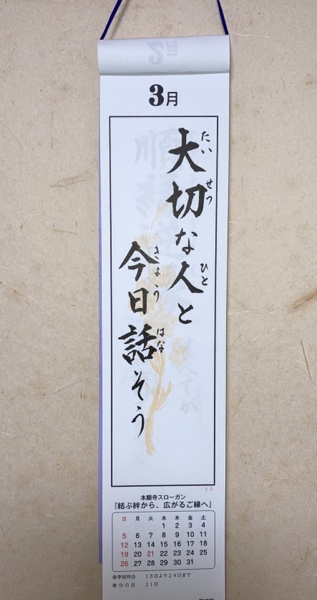 3月
大切な人と
今日話そう
たい
せつ
ひと
きょう
はな
本願寺スローガン
「結ぶ絆から、広がるご縁へ」
日 月 火 水 木 金 土
1 2 3 4
5 6 7 8 9 10 11
12 13 14 15 16 17 18
19 20 21 22 23 24 25
26 27 28 29 30 31
春季彼岸会 18日より24日まで
春分の日 21日